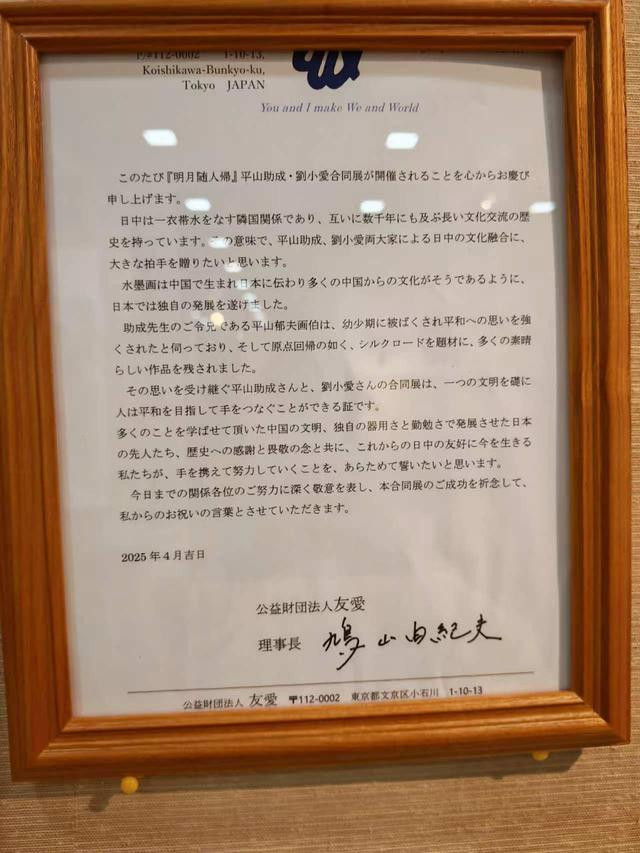 〒112-0002 1-10-13,
Koishikawa-Bunkyo-ku,
Tokyo JAPAN
You and I make We and World
このたび『明月随人帰』平山助成・劉小愛合同展が開催されることを心からお慶び
申し上げます。
日中は一衣帯水をなす隣国関係であり、互いに数千年にも及ぶ長い文化交流の歴
史を持っています。この意味で、平山助成、劉小愛両大家による日中の文化融合に、
大きな拍手を贈りたいと思います。
水墨画は中国で生まれ日本に伝わり多くの中国からの文化がそうであるように、
日本では独自の発展を遂げました。
助成先生のご令兄である平山郁夫画伯は、幼少期に被ばくされ平和への思いを強
くされたと伺っており、そして原点回帰の如く、シルクロードを題材に、多くの素晴
らしい作品を残されました。
その思いを受け継ぐ平山助成さんと、劉小愛さんの合同展は、一つの文明を礎に
人は平和を目指して手をつなぐことができる証です。
多くのことを学ばせて頂いた中国の文明、独自の器用さと勤勉さで発展させた日本
の先人たち、歴史への感謝と畏敬の念と共に、これからの日中の友好に今を生きる
私たちが、手を携えて努力していくことを、あらためて誓いたいと思います。
今日までの関係各位のご努力に深く敬意を表し、本合同展のご成功を祈念して、
私からのお祝いの言葉とさせていただきます。
2025年4月吉日
公益財団法人友愛
理事長 鳩山由紀夫
公益財団法人 友愛 〒112-0002 東京都文京区小石川 1-10-13